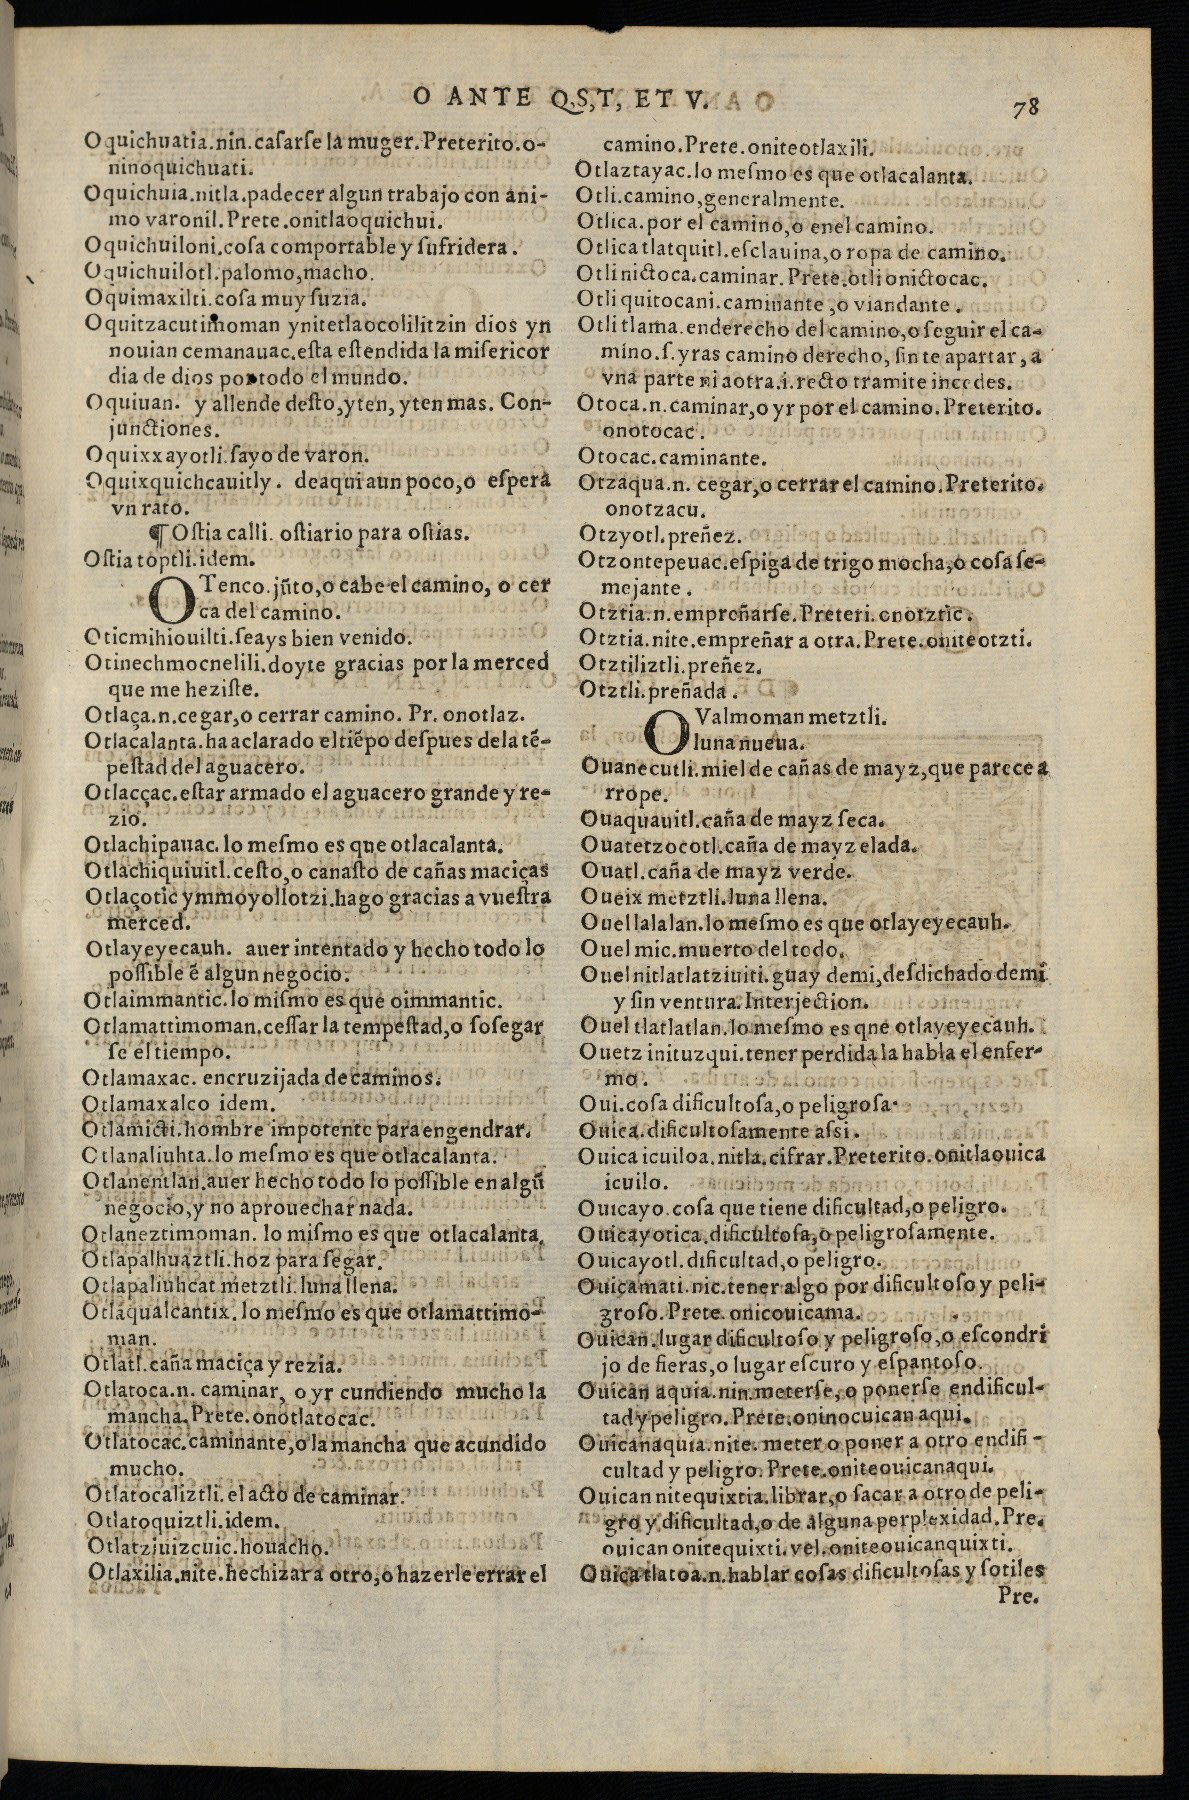 O ANTE Q,S,T, ET V.
78
Oquichuatia.nin.casarſe la muger.Preterito.o-
ninoquichuati.
Oquichuia.nitla.padecer algun trabajo con ani-
mo varonil.Prete.onitlaoquichui.
Oquichuiloni.coſa comportable y ſufridera.
Oquichuilotl.palomo,macho.
Oquimaxilti.coſa muy ſuzia.
Oquitzacutimoman ynitetlaocolilitzin dios yn
nouian cemanauac.eſta eſtendida la miſericor
dia de dios por todo el mundo.
Oquiuan. y allende deſto,yten, yten mas. Con-
junctiones.
Oquixxayotli.ſayo de varon.
Oquixquichcauitly. deaqui aun poco,o eſpera
vn rato.
¶ Oſtia calli. oſtiario para oſtias.
Oſtia toptli.idem.
OTenco.jũto,o cabe el camino, o cer
ca del camino.
Oticmihiouilti.ſeays bien venido.
Otinechmocnelili.doyte gracias por la merced
que me heziſte.
Otlaça.n.cegar,o cerrar camino. Pr. onotlaz.
Otlacalanta.ha aclarado el tiẽpo deſpues dela tẽ-
peſtad del aguacero.
Otlacçac.eſtar armado el aguacero grande y re-
zio.
Otlachipauac.lo meſmo es que otlacalanta.
Otlachiquiuitl.ceſto,o canaſto de cañas maciças
Otlaçotic ymmoyollotzi.hago gracias a vueſtra
merced.
Otlayeyecauh. auer intentado y hecho todo lo
poſſible ẽ algun negocio.
Otlaimmantic.lo miſmo es que oimmantic.
Otlamattimoman.ceſſar la tempeſtad,o ſoſegar
ſe el tiempo.
Otlamaxac. encruzijada de caminos.
Otlamaxalco idem.
Otlamicti.hombre impotente para engendrar.
Otlanaliuhta.lo meſmo es que otlacalanta.
Otlanentlan.auer hecho todo lo poſſible en algũ
negocio,y no aprouechar nada.
Otlaneztimoman. lo miſmo es que otlacalanta.
Otlapalhuaztli.hoz para ſegar.
Otlapaliuhcat metztli.luna llena.
Otlaqualcantix.lo meſmo es que otlamattimo-
man.
Otlatl.caña maciça y rezia.
Otlatoca.n. caminar, o yr cundiendo mucho la
mancha.Prete.onotlatocac.
Otlatocac.caminante,o la mancha que acundido
mucho.
Otlatocaliztli.el acto de caminar.
Otlatoquiztli.idem.
Otlatzjuizcuic.houacho.
Otlaxilia.nite.hechizar a otro,o hazerle errar el
camino.Prete.oniteotlaxili.
Otlaztayac.lo meſmo es que otlacalanta.
Otli.camino,generalmente.
Otlica.por el camino,o enel camino.
Otlica tlatquitl.eſclauina,o ropa de camino.
Otli nictoca.caminar. Prete.otli onictocac.
Otli quitocani.caminante,o viandante.
Otli tlama.enderecho del camino,o ſeguir el ca-
mino.ſ.yras camino derecho, ſin te apartar, a
vna parte ni a otra.i.recto tramite incedes.
Otoca.n.caminar,o yr por el camino.Preterito.
onotocac.
Otocac.caminante.
Otzaqua.n. cegar,o cerrar el camino.Preterito.
onotzacu.
Otzyotl.preñez.
Otzontepeuac.eſpiga de trigo mocha,o coſa ſe-
mejante.
Otztia.n.empreñarſe.Preteri.onotztic.
Otztia.nite.empreñar a otra.Prete.oniteotzti.
Otztiliztli.preñez.
Otztli.preñada.
OValmoman metztli.
luna nueua.
Ouanecutli.miel de cañas de mayz,que parece a
rrope.
Ouaquauitl.caña de mayz ſeca.
Ouatetzocotl.caña de mayz elada.
Ouatl.caña de mayz verde.
Oueix metztli.luna llena.
Ouel lalalan.lo meſmo es que otlayeyecauh.
Ouel mic.muerto del todo.
Ouel nitlatlatziuiti.guay demi,deſdichado demi
y ſin ventura.Interjection.
Ouel tlatlatlan.lo meſmo es que otlayeyecauh.
Ouetz inituzqui.tener perdida la habla el enfer-
mo.
Oui.coſa dificultoſa,o peligroſa.
Ouica.dificultoſamente aſsi.
Ouica icuiloa.nitla.cifrar.Preterito.onitlaouica
icuilo.
Ouicayo.coſa que tiene dificultad,o peligro.
Ouicayotica.dificultoſa,o peligroſamente.
Ouicayotl.dificultad,o peligro.
Ouicamati.nic.tener algo por dificultoſo y peli-
groſo.Prete.onicouicama.
Ouican.lugar dificultoſo y peligroſo,o eſcondri
jo de fieras,o lugar eſcuro y eſpantoſo.
Ouican aquia.nin.meterſe,o ponerſe endificul-
tad y peligro.Prete.oninocuican aqui.
Ouicanaquia.nite. meter o poner a otro endifi-
cultad y peligro.Prete.oniteouicanaqui.
Ouican nitequixtia.librar,o ſacar a otro de peli-
gro y dificultad,o de alguna perplexidad.Pre.
ouican onitequixti.vel.oniteouicanquixti.
Ouica tlatoa.n.hablar coſas dificultoſas y ſotiles
Pre.